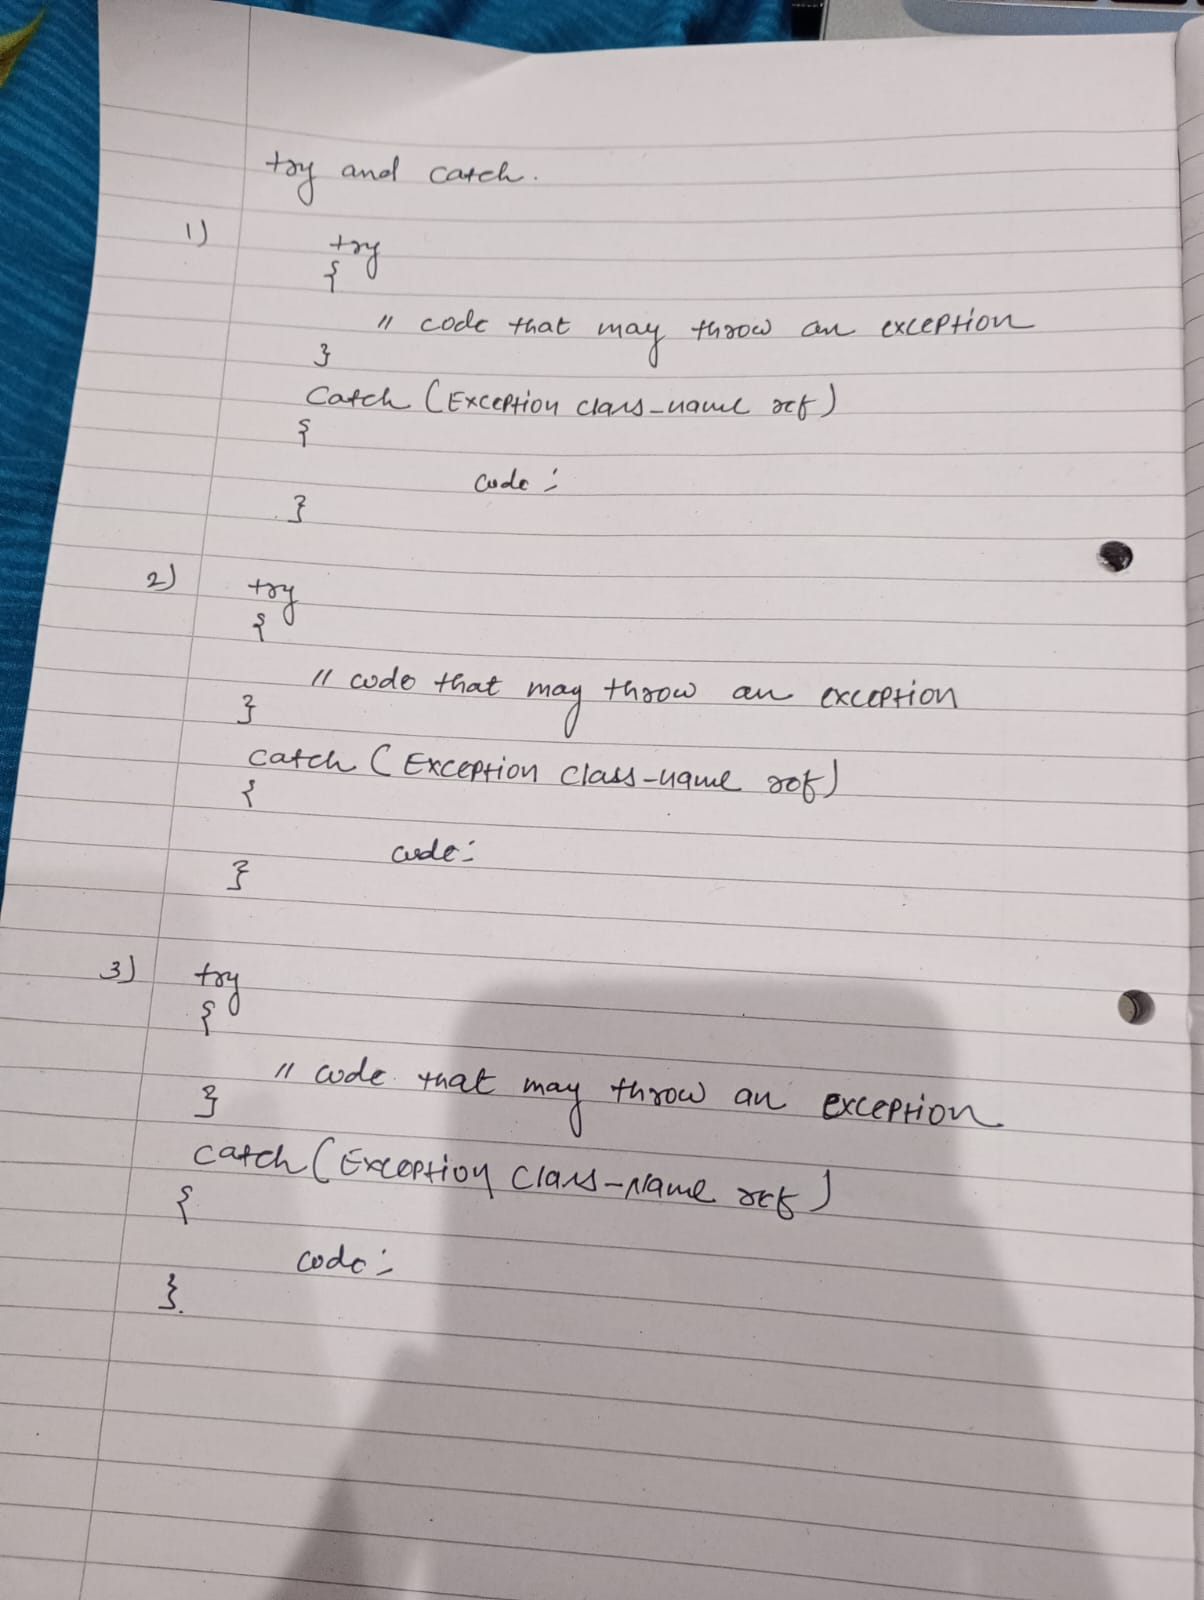 try and catch.
1)
try
{
// code that may throw an exception
}
Catch (Exception class-name ref)
{
code:
}
2)
try
{
// code that may throw an exception
}
catch (Exception class-name ref)
{
code:
}
3)
try
{
// code that may throw an exception
}
catch (Exception Class-Name ref)
{
code:
}.